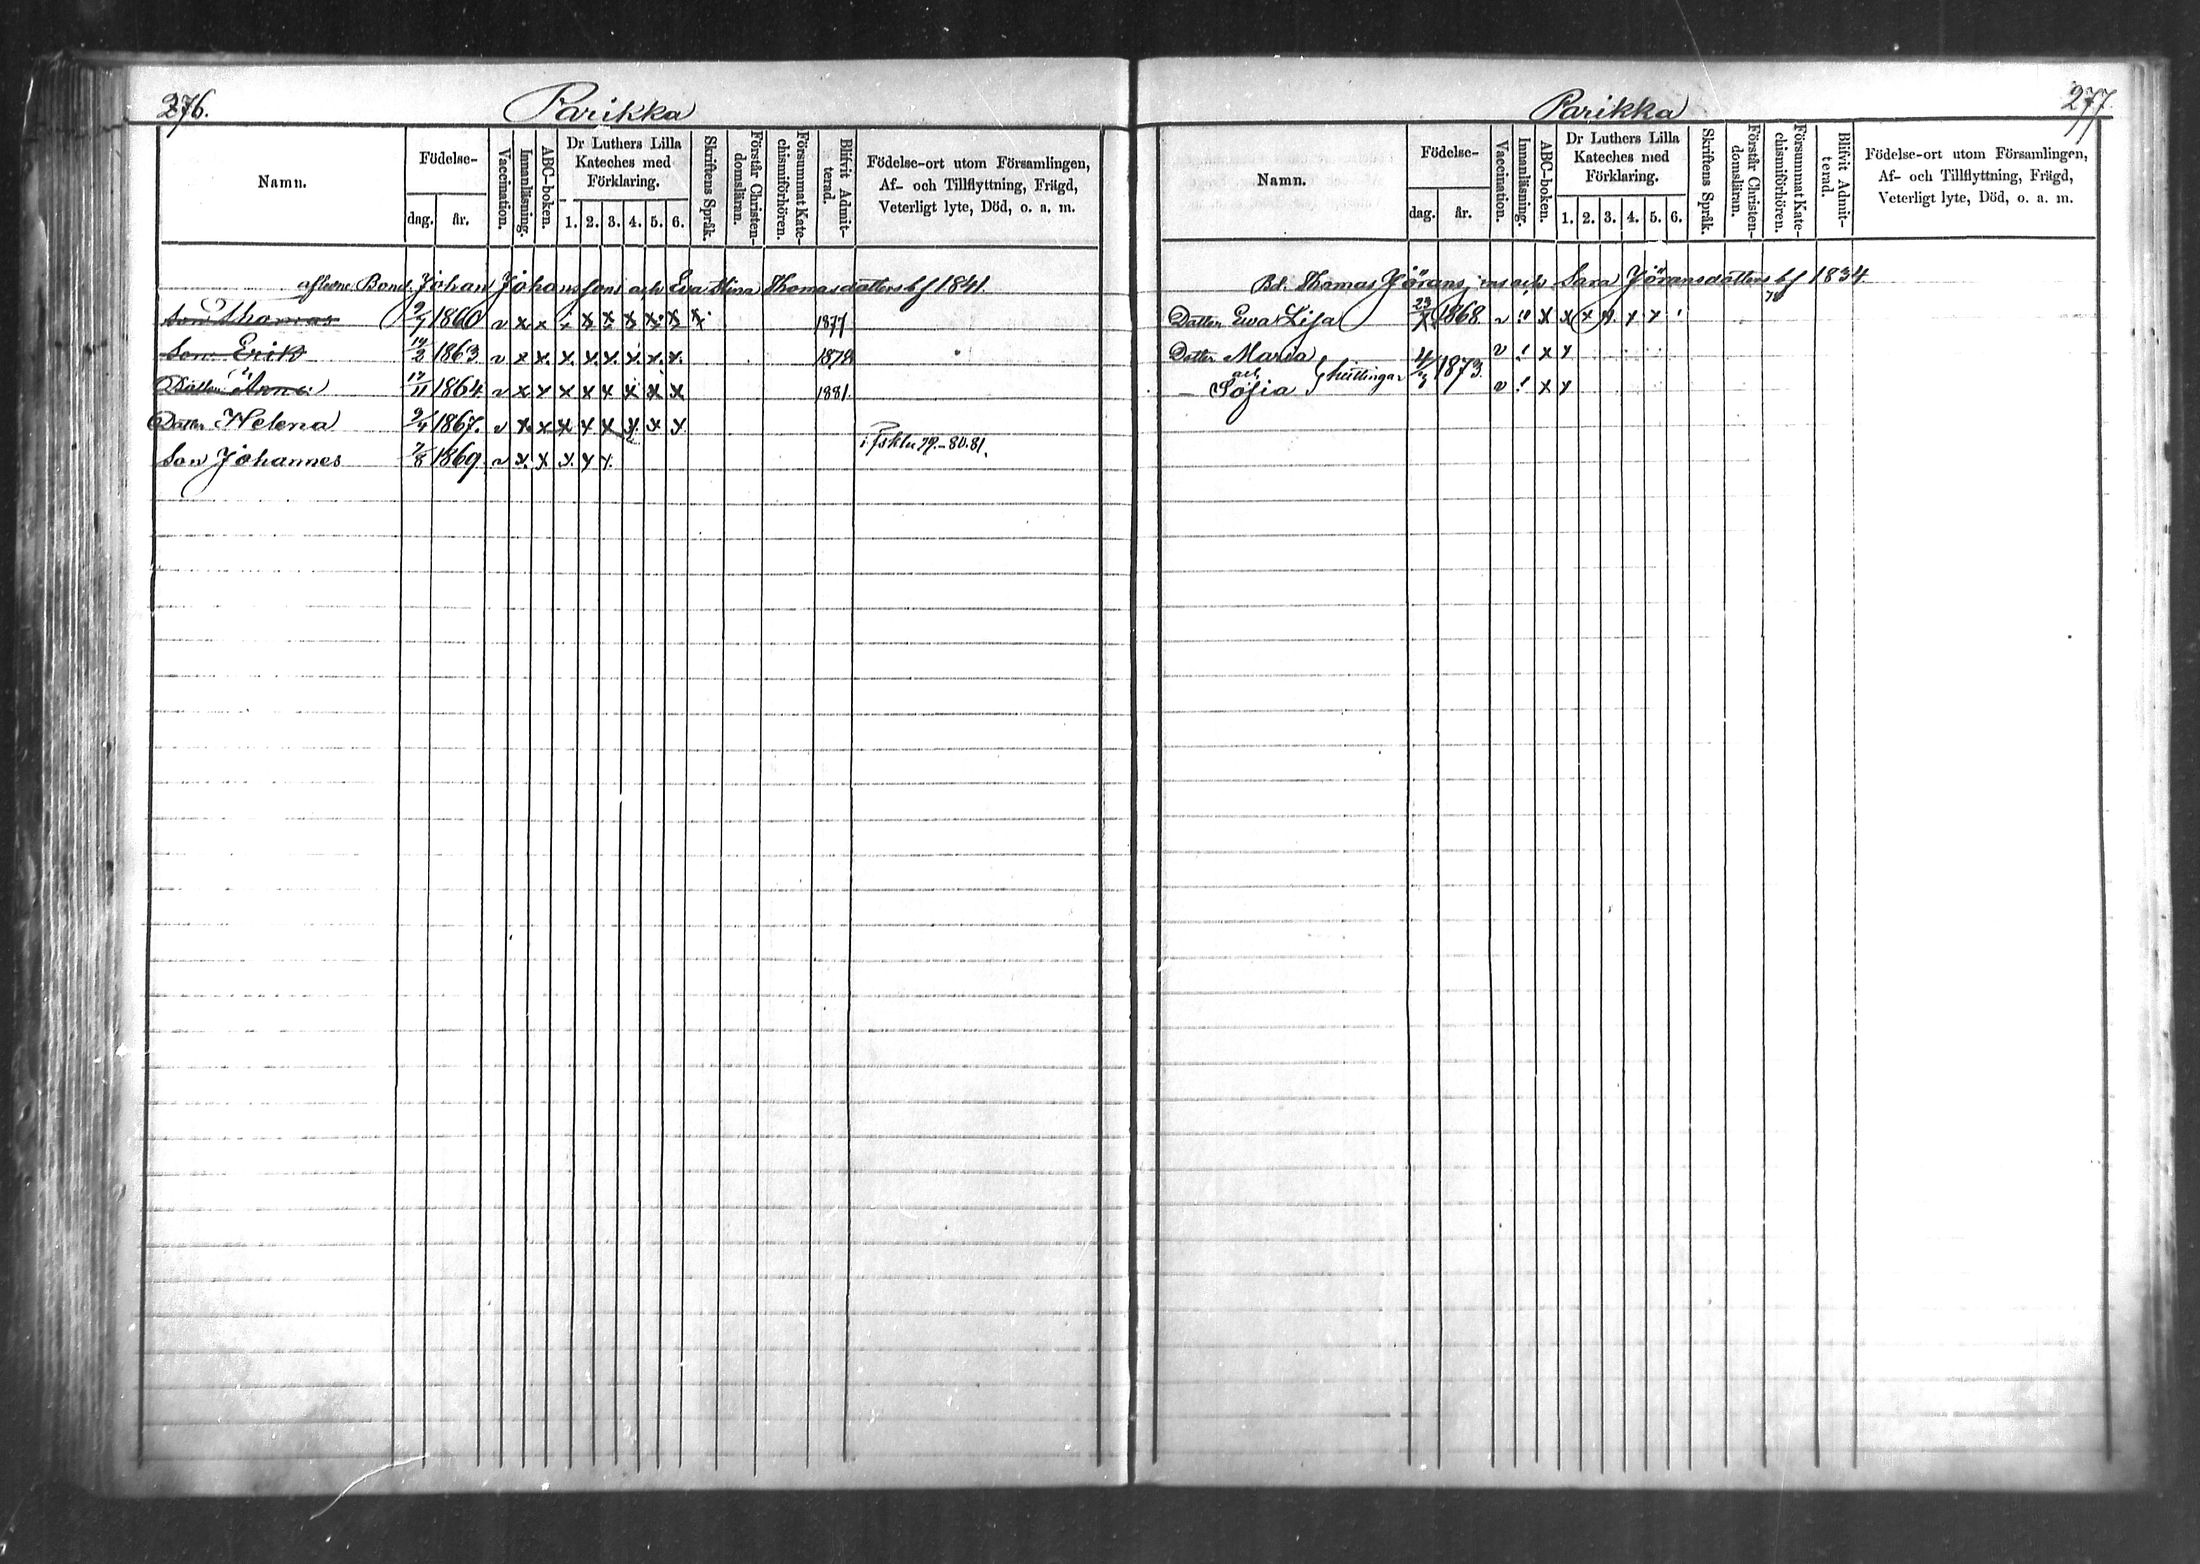 276.
Parikka
Namn.
Födelse-
dag. år.
Vaccination.
Innanläsning.
ABC-boken.
Dr Luthers Lilla
Kateches med
Förklaring.
1. 2. 3. 4. 5. 6.
Skriftens Språk.
Förstår Christen-
domsläran.
Försummat Kate-
chismiförhören.
Blifvit Admit-
terad.
Födelse-ort utom Församlingen,
Af- och Tillflyttning, Frägd,
Veterligt lyte, Död, o. a. m.
aflidne Bond. Johan Johanssons och Eva Stina Thomasdotters bf 1841.
Son Thomas 9/7 1860 v x x x x x x x x 1877
Son Erik 14/2 1863 v x x x. x. x. x. x. x. 1878
Dotter Anna 17/11 1864 v x x x x x x x x 1881.
Dotter Helena 9/4 1867. v x x x x x x x x
i fskln 79.-80.81.
Son Johannes 7/8 1869. v x. x x. x x.
277.
Parikka
Namn.
Födelse-
dag. år.
Vaccination.
Innanläsning.
ABC-boken.
Dr Luthers Lilla
Kateches med
Förklaring.
1. 2. 3. 4. 5. 6.
Skriftens Språk.
Förstår Christen-
domsläran.
Försummat Kate-
chismiförhören.
Blifvit Admit-
terad.
Födelse-ort utom Församlingen,
Af- och Tillflyttning, Frägd,
Veterligt lyte, Död, o. a. m.
Bd. Thomas Jöranssons och Sara Jöransdotters bf 1834.
Dotter Eva Lisa 23/X 1868 v x x x x x x 78
Dotter Maria v x x
och } tvillingar 4/3 1873.
— Sofia v x x